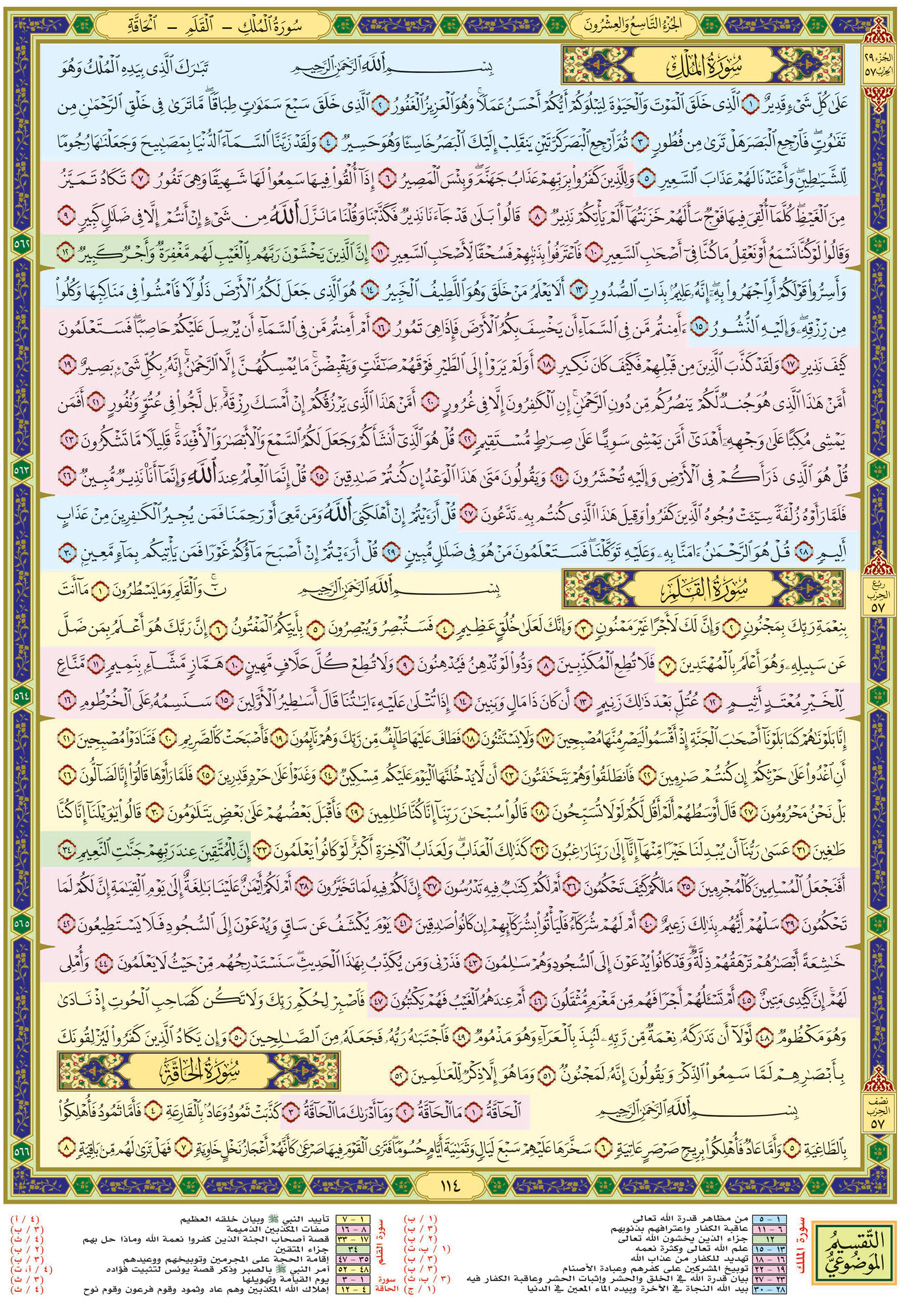 سورة الملك - القلم - الحاقة
الجزء التاسع والعشرون
الجزء ٢٩
الحزب ٥٧
سورة الملك
بسم الله الرحمن الرحيم تبرك الذي بيده الملك وهو
على كل شيء قدير ١ الذي خلق الموت والحيوة ليبلوكم أيكم أحسن عملا وهو العزيز الغفور ٢ الذي خلق سبع سموت طباقا ما ترى في خلق الرحمن من
تفوت فارجع البصر هل ترى من فطور ٣ ثم ارجع البصر كرتين ينقلب إليك البصر خاسئا وهو حسير ٤ ولقد زينا السماء الدنيا بمصبيح وجعلنها رجوما
للشيطين وأعتدنا لهم عذاب السعير ٥ وللذين كفروا بربهم عذاب جهنم وبئس المصير ٦ إذا ألقوا فيها سمعوا لها شهيقا وهي تفور ٧ تكاد تميز
من الغيظ كلما ألقي فيها فوج سألهم خزنتها ألم يأتكم نذير ٨ قالوا بلى قد جاءنا نذير فكذبنا وقلنا ما نزل الله من شيء إن أنتم إلا في ضلل كبير ٩
وقالوا لو كنا نسمع أو نعقل ما كنا في أصحب السعير ١٠ فاعترفوا بذنبهم فسحقا لأصحب السعير ١١ إن الذين يخشون ربهم بالغيب لهم مغفرة وأجر كبير ١٢
٥٦٢
وأسروا قولكم أو اجهروا به إنه عليم بذات الصدور ١٣ ألا يعلم من خلق وهو اللطيف الخبير ١٤ هو الذي جعل لكم الأرض ذلولا فامشوا في مناكبها وكلوا
من رزقه وإليه النشور ١٥ ءأمنتم من في السماء أن يخسف بكم الأرض فإذا هي تمور ١٦ أم أمنتم من في السماء أن يرسل عليكم حاصبا فستعلمون
كيف نذير ١٧ ولقد كذب الذين من قبلهم فكيف كان نكير ١٨ أولم يروا إلى الطير فوقهم صفت ويقبضن ما يمسكهن إلا الرحمن إنه بكل شيء بصير ١٩
أمن هذا الذي هو جند لكم ينصركم من دون الرحمن إن الكفرون إلا في غرور ٢٠ أمن هذا الذي يرزقكم إن أمسك رزقه بل لجوا في عتو ونفور ٢١ أفمن
يمشي مكبا على وجهه أهدى أمن يمشي سويا على صرط مستقيم ٢٢ قل هو الذي أنشأكم وجعل لكم السمع والأبصر والأفئدة قليلا ما تشكرون ٢٣
قل هو الذي ذرأكم في الأرض وإليه تحشرون ٢٤ ويقولون متى هذا الوعد إن كنتم صدقين ٢٥ قل إنما العلم عند الله وإنما أنا نذير مبين ٢٦
٥٦٣
فلما رأوه زلفة سيئت وجوه الذين كفروا وقيل هذا الذي كنتم به تدعون ٢٧ قل أرءيتم إن أهلكني الله ومن معي أو رحمنا فمن يجير الكفرين من عذاب
أليم ٢٨ قل هو الرحمن ءامنا به وعليه توكلنا فستعلمون من هو في ضلل مبين ٢٩ قل أرءيتم إن أصبح ماؤكم غورا فمن يأتيكم بماء معين ٣٠
ربع
الحزب
٥٧
سورة القلم
بسم الله الرحمن الرحيم ن والقلم وما يسطرون ١ ما أنت
بنعمة ربك بمجنون ٢ وإن لك لأجرا غير ممنون ٣ وإنك لعلى خلق عظيم ٤ فستبصر ويبصرون ٥ بأييكم المفتون ٦ إن ربك هو أعلم بمن ضل
عن سبيله وهو أعلم بالمهتدين ٧ فلا تطع المكذبين ٨ ودوا لو تدهن فيدهنون ٩ ولا تطع كل حلاف مهين ١٠ هماز مشاء بنميم ١١ مناع
للخير معتد أثيم ١٢ عتل بعد ذلك زنيم ١٣ أن كان ذا مال وبنين ١٤ إذا تتلى عليه ءايتنا قال أسطير الأولين ١٥ سنسمه على الخرطوم ١٦
٥٦٤
إنا بلونهم كما بلونا أصحب الجنة إذ أقسموا ليصرمنها مصبحين ١٧ ولا يستثنون ١٨ فطاف عليها طائف من ربك وهم نائمون ١٩ فأصبحت كالصريم ٢٠ فتنادوا مصبحين ٢١
أن اغدوا على حرثكم إن كنتم صرمين ٢٢ فانطلقوا وهم يتخفتون ٢٣ أن لا يدخلنها اليوم عليكم مسكين ٢٤ وغدوا على حرد قدرين ٢٥ فلما رأوها قالوا إنا لضالون ٢٦
بل نحن محرومون ٢٧ قال أوسطهم ألم أقل لكم لولا تسبحون ٢٨ قالوا سبحن ربنا إنا كنا ظلمين ٢٩ فأقبل بعضهم على بعض يتلومون ٣٠ قالوا يويلنا إنا كنا
طغين ٣١ عسى ربنا أن يبدلنا خيرا منها إنا إلى ربنا رغبون ٣٢ كذلك العذاب ولعذاب الأخرة أكبر لو كانوا يعلمون ٣٣ إن للمتقين عند ربهم جنت النعيم ٣٤
أفنجعل المسلمين كالمجرمين ٣٥ ما لكم كيف تحكمون ٣٦ أم لكم كتب فيه تدرسون ٣٧ إن لكم فيه لما تخيرون ٣٨ أم لكم أيمن علينا بلغة إلى يوم القيمة إن لكم لما
تحكمون ٣٩ سلهم أيهم بذلك زعيم ٤٠ أم لهم شركاء فليأتوا بشركائهم إن كانوا صدقين ٤١ يوم يكشف عن ساق ويدعون إلى السجود فلا يستطيعون ٤٢
٥٦٥
خشعة أبصرهم ترهقهم ذلة وقد كانوا يدعون إلى السجود وهم سلمون ٤٣ فذرني ومن يكذب بهذا الحديث سنستدرجهم من حيث لا يعلمون ٤٤ وأملي
لهم إن كيدي متين ٤٥ أم تسئلهم أجرا فهم من مغرم مثقلون ٤٦ أم عندهم الغيب فهم يكتبون ٤٧ فاصبر لحكم ربك ولا تكن كصاحب الحوت إذ نادى
وهو مكظوم ٤٨ لولا أن تدركه نعمة من ربه لنبذ بالعراء وهو مذموم ٤٩ فاجتبه ربه فجعله من الصلحين ٥٠ وإن يكاد الذين كفروا ليزلقونك
بأبصرهم لما سمعوا الذكر ويقولون إنه لمجنون ٥١ وما هو إلا ذكر للعلمين ٥٢
سورة الحاقة
نصف
الحزب
٥٧
بسم الله الرحمن الرحيم الحاقة ١ ما الحاقة ٢ وما أدرىك ما الحاقة ٣ كذبت ثمود وعاد بالقارعة ٤ فأما ثمود فأهلكوا
بالطاغية ٥ وأما عاد فأهلكوا بريح صرصر عاتية ٦ سخرها عليهم سبع ليال وثمنية أيام حسوما فترى القوم فيها صرعى كأنهم أعجاز نخل خاوية ٧ فهل ترى لهم من باقية ٨
٥٦٦
١١٤
التقسيم الموضوعي
سورة الملك
١ - ٥ من مظاهر قدرة الله تعالى (١ / ب)
٦ - ١١ عاقبة الكفار واعترافهم بذنوبهم (٣ / ب)
١٢ جزاء الذين يخشون الله تعالى (٢ / ب)
١٣ - ١٥ علم الله تعالى وكثرة نعمه (١ / ب، ت)
١٦ - ١٨ تهديد للكفار من عذاب الله
١٩ - ٢٢ توبيخ المشركين على كفرهم وعبادة الأصنام
٢٣ - ٢٧ بيان قدرة الله في الخلق والحشر وإثبات الحشر وعاقبة الكفار فيه
٢٨ - ٣٠ بيد الله النجاة في الآخرة وبيده الماء المعين في الدنيا
سورة القلم
١ - ٧ تأييد النبي ﷺ وبيان خلقه العظيم (٤ / أ)
٨ - ١٦ صفات المكذبين الذميمة (٣ / ب)
١٧ - ٣٣ قصة أصحاب الجنة الذين كفروا نعمة الله وماذا حل بهم
٣٤ جزاء المتقين (٢ / ب)
٣٥ - ٤٧ إقامة الحجة على المجرمين وتوبيخهم ووعيدهم
٤٨ - ٥٢ أمر النبي ﷺ بالصبر وذكر قصة يونس لتثبيت فؤاده
سورة الحاقة
١ - ٣ يوم القيامة وتهويلها
٤ - ١٢ إهلاك الله المكذبين وهم عاد وثمود وقوم فرعون وقوم نوح